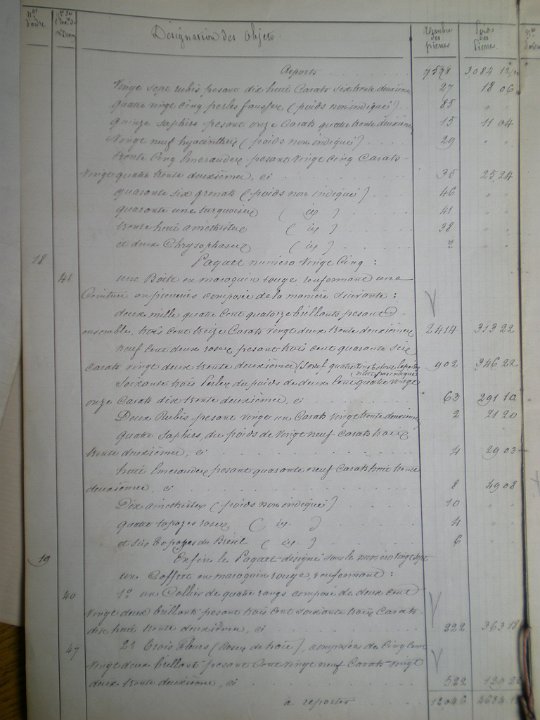 Nos d'ordre
Désignation des Objets
Nombre des pierres
Poids des pierres
Reports 7578 3084 12
Vingt sept rubis pesant dix huit Carats six trente deuxième 27 18 06
quatre vingt cinq perles fausses (poids non indiqué) 85
quinze saphirs pesant onze Carats quatre trente deuxième 15 11 04
Vingt neuf hyacinthes (poids non indiqué) 29
trente Cinq Emeraudes pesant Vingt Cinq Carats
Vingt quatre trente deuxième, ci 35 25 24
quarante six grenats (poids non indiqué) 46
quarante une turquoises (id) 41
trente huit améthistes (id) 38
et deux Chrysophases (id) 2
18 Paquet numéro Vingt Cinq :
46 une Boîte en maroquin rouge renfermant une
Ceinture en pierreries composée de la manière suivante :
deux mille quatre Cent quatorze brillants pesant
ensemble, trois Cent treize Carats vingt deux trente deuxième 2414 313 22
neuf Cent deux roses pesant trois Cent quarante six
Carats vingt deux trente deuxième 902 346 22
Soixante trois perles du poids de deux Cent quatre vingt
onze Carats dix trente deuxième, ci 63 291 10
Deux Rubis pesant vingt un Carats Vingt trente deuxième 2 21 20
quatre Saphirs du poids de Vingt neuf Carats trois
trente deuxième, ci 4 29 03
huit Emeraudes pesant quarante neuf Carats huit trente
deuxième ci 8 49 08
Dix améthistes (poids non indiqué) 10
quatre topazes roses (id) 4
et six topazes du Brésil (id) 6
19 Enfin le Paquet désigné sous le numéro vingt sept
un Coffret en maroquin rouge, renfermant :
40 1° un Collier de quatre rangs composé de deux Cent
Vingt deux brillants pesant trois Cent soixante trois Carats
dix huit trente deuxième, ci 222 363 18
47 2° trois fleurs, composées de Cinq Cent
Vingt deux brillants pesant Cent Vingt neuf Carats vingt
deux trente deuxième, ci 522
à reporter 12046